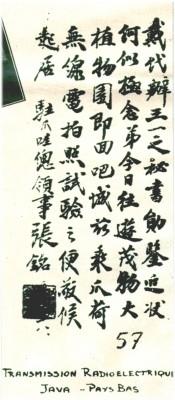 戴代辦王一之秘書勛鑒近狀
何似極念弟今日往遊茂物大
植物園即回吧城茲乘爪荷
無線電拍照試驗之便敬候
起居 駐爪哇總領事張銘
57
TRANSMISSION RADIOELECTRIQUE
JAVA - PAYS BAS